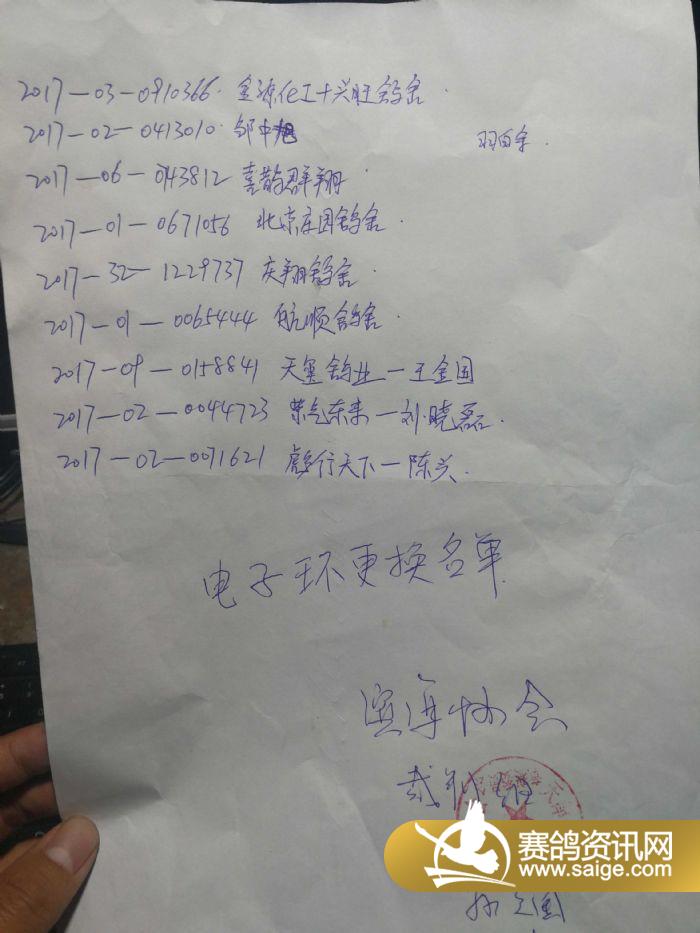 2017-03-0910366. 金源化工十兴旺鸽舍.
2017-02-0413010 邹中旭 羽白字.
2017-06-0143812 喜韵群翔
2017-01-0671056 北京庄园鸽舍.
2017-32-1229737 庆翔鸽舍.
2017-01-0065444 航顺鸽舍.
2017-09-0158841 天玺鸽业—王金国
2017-02-0044723 紫气东来—刘晓磊.
2017-02-0071621 行天下—陈兴.
电子环更换名单
滨海协会
裁判
赛鸽资讯网
www.saige.com